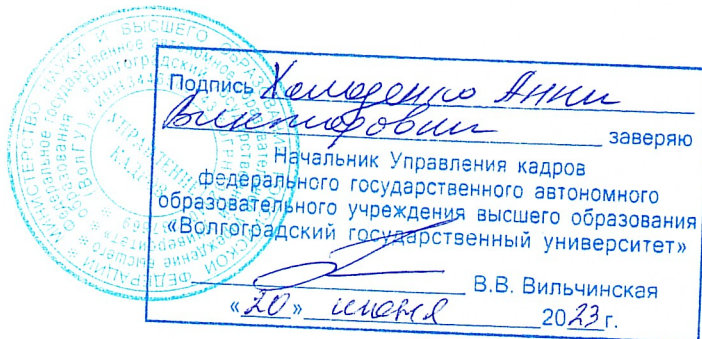 Подпись Хомоденко Анны
Викторовны заверяю
Начальник Управления кадров
федерального государственного автономного
образовательного учреждения высшего образования
«Волгоградский государственный университет»
В.В. Вильчинская
«20» июня 2023 г.
МИНИСТЕРСТВО НАУКИ И ВЫСШЕГО ОБРАЗОВАНИЯ РОССИЙСКОЙ ФЕДЕРАЦИИ
УПРАВЛЕНИЕ
КАДРОВ